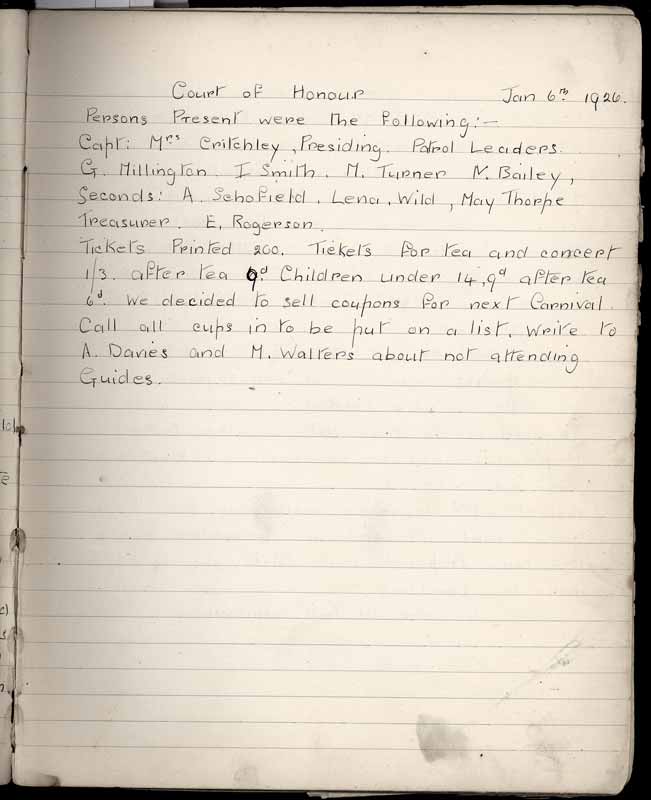 Court of Honour Jan 6th 1926.
Persons Present were the following:-
Capt: Mrs Critchley, Presiding. Patrol Leaders.
G. Millington. I Smith. M. Turner N. Bailey,
Seconds: A. Schofield. Lena, Wild, May Thorpe
Treasurer. E. Rogerson.
Tickets Printed 200. Tickets for tea and concert
1/3. after tea 9d. Children under 14, 9d after tea
6d. We decided to sell coupons for next Carnival.
Call all cups in to be put on a list. Write to
A. Davies and M. Walters about not attending
Guides.